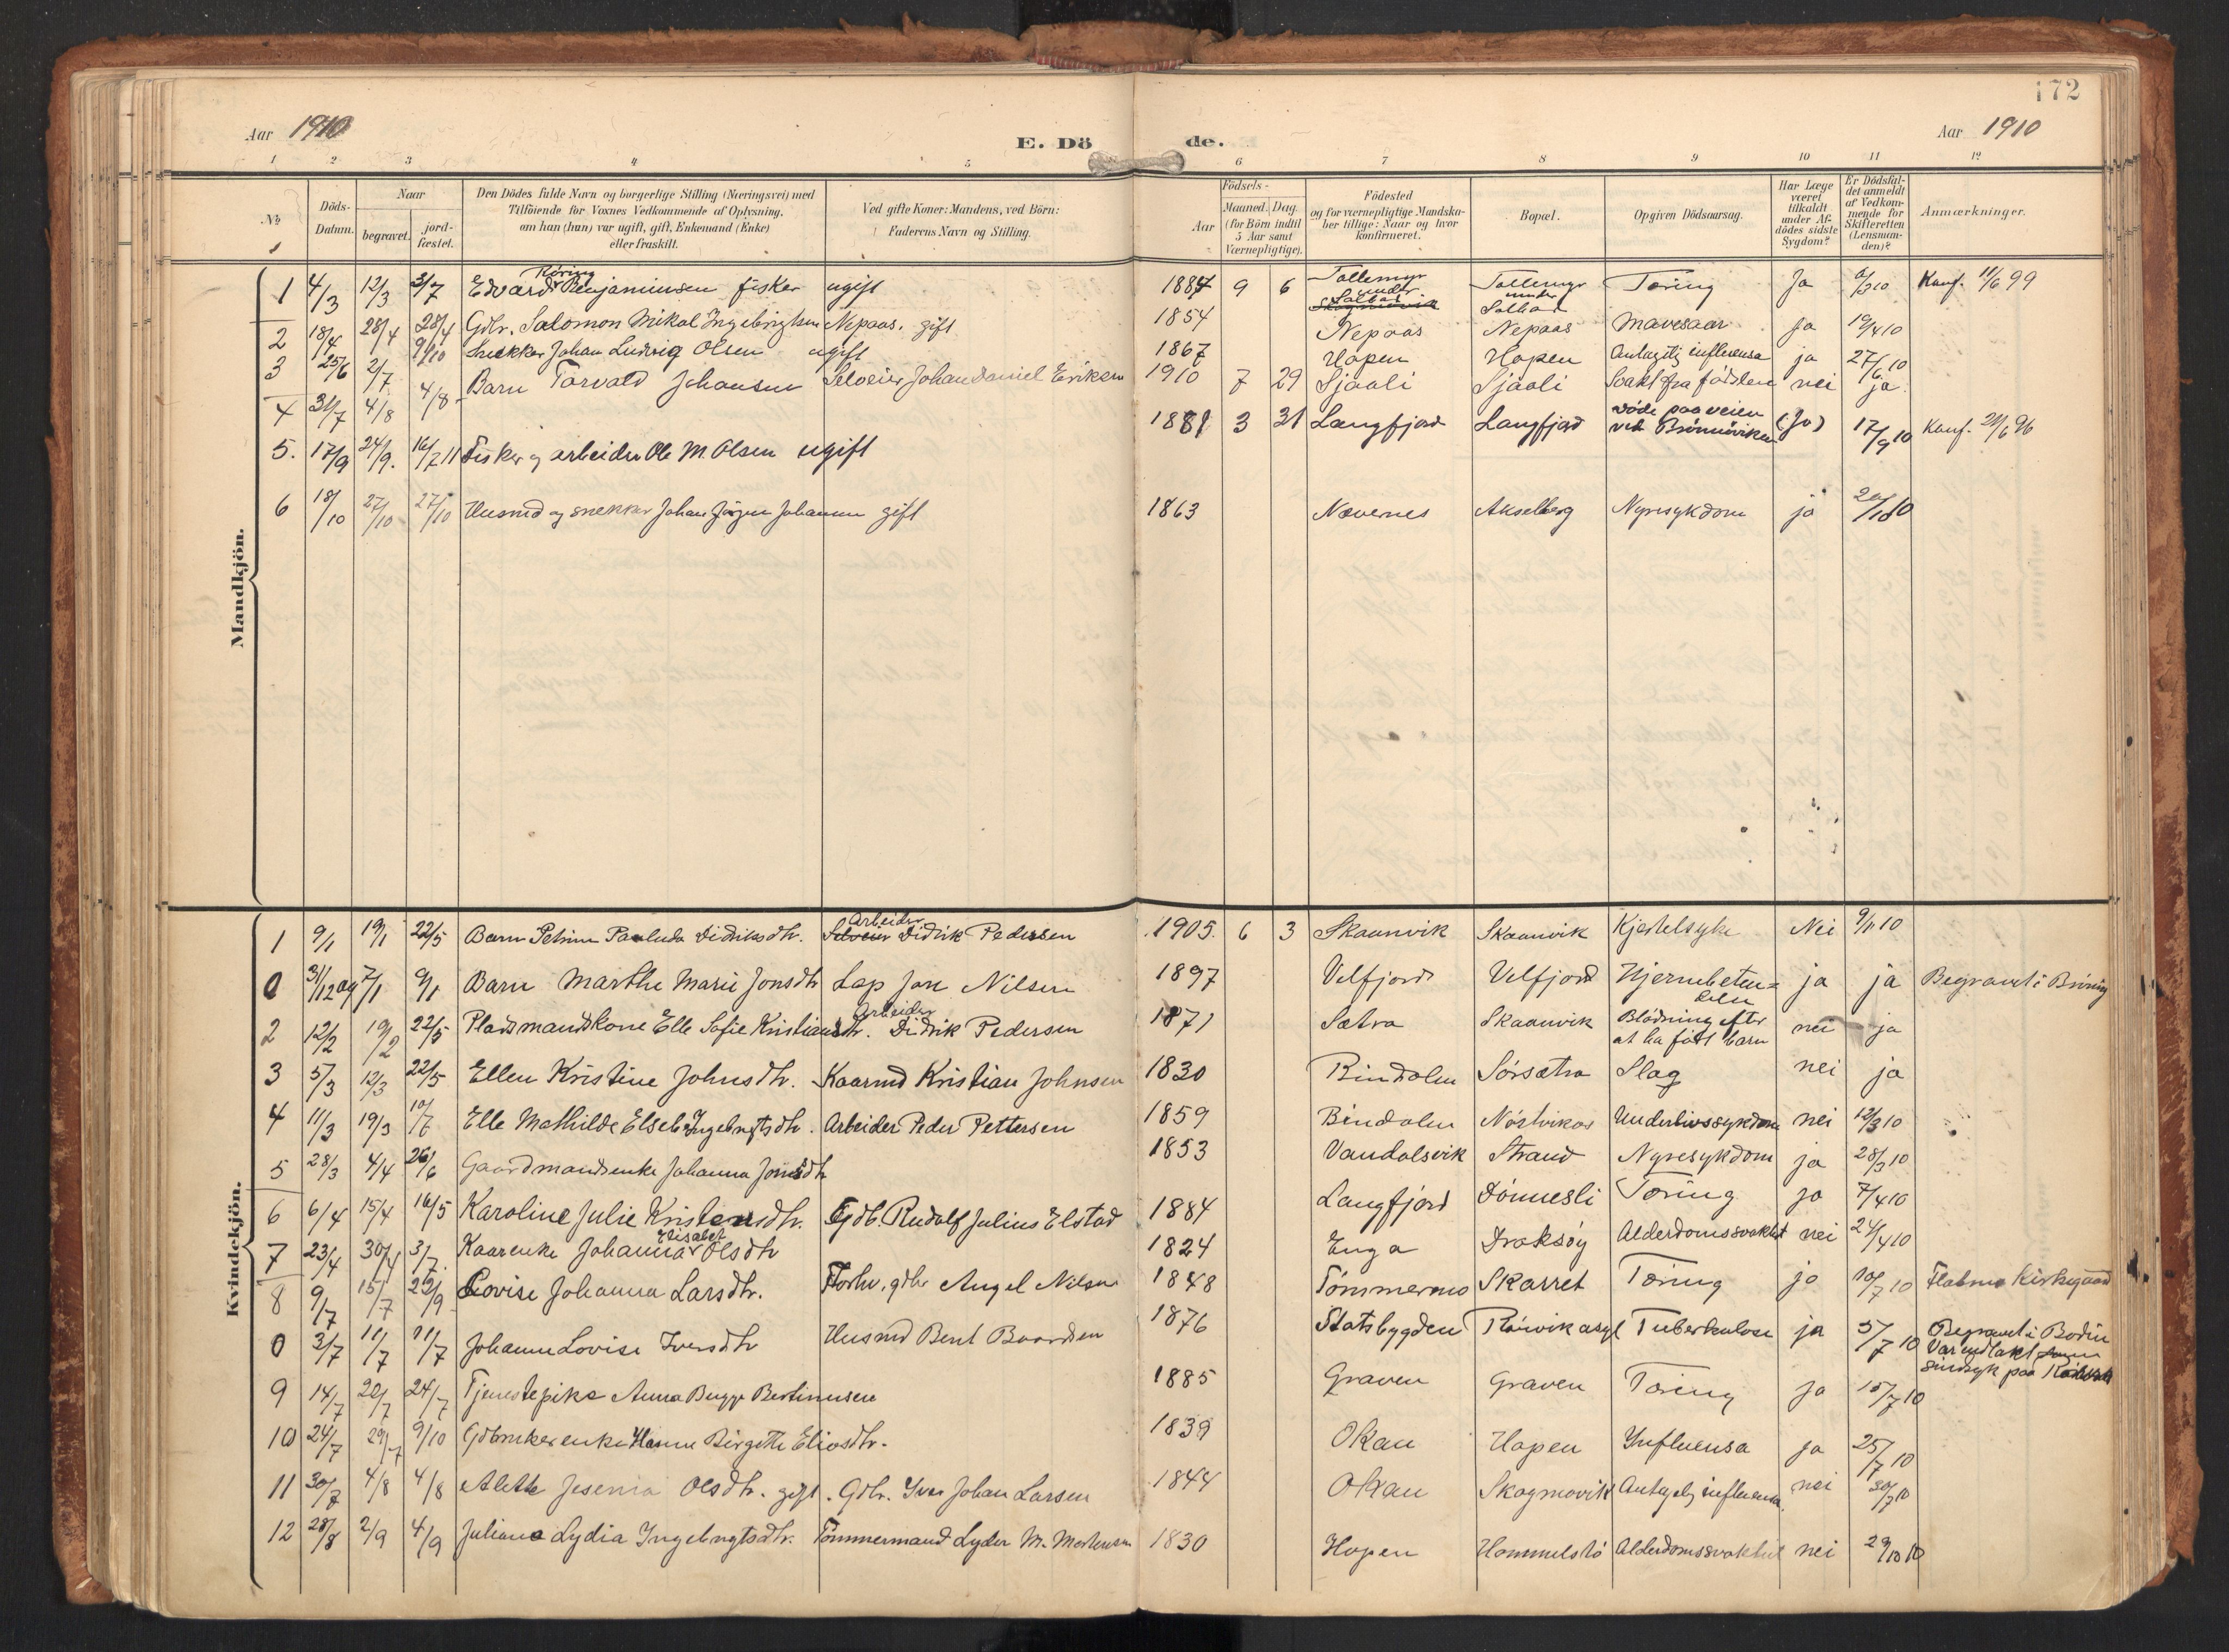 172
Aar 1910
E. Dö
de.
Aar 1910
1 2 3 4 5 6 7 8 9 10 11 12
No
Döds-Datum.
Naar
begravet.
jord-fæstet.
Den Dödes fulde Navn og borgerlige Stilling (Næringsvei) med
Tilföiende for Voxnes Vedkommende af Oplysning,
om han (hun) var ugift, gift, Enkemand (Enke)
eller fraskilt.
Ved gifte Koner: Mandens, ved Börn:
Faderens Navn og Stilling.
Födsels-
Aar
Maaned. Dag.
(for Börn indtil
5 Aar samt
Værnepligtige).
Födested
og for værnepligtige Mandska-
ber tillige: Naar og hvor
konfirmeret.
Bopæl.
Opgiven Dödsaarsag.
Har Læge
været
tilkaldt
under Af-
dödes sidste
Sygdom?
Er Dödsfal-
det anmeldt
af Vedkom-
mende for
Skifteretten
(Lensman-
den)?
Anmærkninger.
Mandkjön.
1 4/3 12/3 3/7 Edvard Röring Benjaminsen fisker ugift 1884 9 6 Tollemyr under Salhus Skogmovik Tollemyr under Tæring Ja Konf. 11/6 99
2 18/4 28/4 28/4 Gdbr. Salomon Mikal Ingebrigtsen Nepaas. gift 1854 Nepaas Nepaas Mavesaar ja 19/4 10
3 25/6 2/7 9/10 Snekker Johan Ludvig Olsen ugift 1867 Hopen Hopen Antagelig influensa ja 27/6 10
4 31/7 4/8 4/8 Barn Torvald Johansen Selveier Johan Daniel Eriksen 1910 7 29 Sjaali Sjaali Svakt fra fødslen nei ja
5. 17/9 24/9. 16/7 11 Fisker og arbeider Ole M. Olsen ugift 1881 3 31 Langfjord Langfjord Døde paa veien ved Brønnøviken (Ja) 17/9 10 Konf. 21/6 96
6 18/10 27/10 27/10 Husmd og snekker Johan Jörgen Johansen gift 1863 Nævernes Akselberg Nyresykdom ja 20/10 10
Kvindekjön.
1 9/1 19/1 22/5 Barn Petrine Paulida Didriksdtr. Selveier Arbeider Didrik Pedersen 1905. 6 3 Skaanvik Skaanvik Kjertelsyke Nei 9/1 10
0 31/12 09 7/1 9/1 Barn Marthe Marie Jonsdtr Lap Jon Nilsen 1897 Velfjord Velfjord Hjernebetendelse ja ja Begravet i Brönnö
2 12/2 19/2 22/5 Pladsmandskone Elle Sofie Kristiansdtr. Arbeider Didrik Pedersen 1871 Sætra Skaanvik Blödning efter at ha født barn nei ja
3 5/3 12/3 22/5 Ellen Kristine Johnsdtr. Kaarmd Kristian Johnsen 1830 Bindalen Sörsætra Slag nei ja
4 11/3 19/3 10/7 Elle Mathilde Elseb. Ingebrigtsdtr. Arbeider Peder Pettersen 1859 Bindalen Nöstvikas Underlivssykdom nei 12/3 10
5 28/3 4/4 26/6 Gaardmandsenke Johanna Jonsdtr 1853 Vandalsvik Strand Nyresykdom ja 28/3 10
6 6/4 15/4 16/5 Karoline Julie Kristensdtr. Gdb. Rudolf Julius Elstad 1884 Langfjord Dönnesli Tæring ja 7/4 10
7 23/4 30/4 3/7. Kaarenke Johanna Elisabet Olsdtr 1824 Enga Draksöy Alderdomssvakhet nei 24/4 10
8 9/7 15/7 22/9 Lovise Johanna Larsdtr. Forhv. gdbr Angel Nilsen 1848 Tömmermo Skarret Tæring ja 10/7 10 Flatmo Kirkegaard
0 3/7 11/7 11/7 Johanne Lovise Iversdtr Husmd Bent Baardsen 1876 Statsbygden Rönvik asyl Tuberkulose ja 5/7 10 Begravet i Bodin Var indlakt som sindsyk paa Rönvik
9 14/7 20/7 24/7 Tjenestepike Anna Bugge Bertinusen 1885 Graven Graven Tæring ja 15/7 10
10 24/7 29/7 9/10 Gdbrukerenke Hanna Birgitte Eliasdtr. 1839 Okan Hopen Influensa ja 25/7 10
11 30/7 4/8 4/8 Alette Jesenia Olsdtr. gift. Gdbr. Iver Johan Larsen 1844 Okan Skogmovik Antagelig influensa. nei 30/7 10
12 28/8 2/9 4/9 Juliana Lydia Ingebrigtsdtr. Tömmermand Lyder M. Mortensen 1830 Hopen Hommelstö Alderdomssvakhet nei 29/10 10